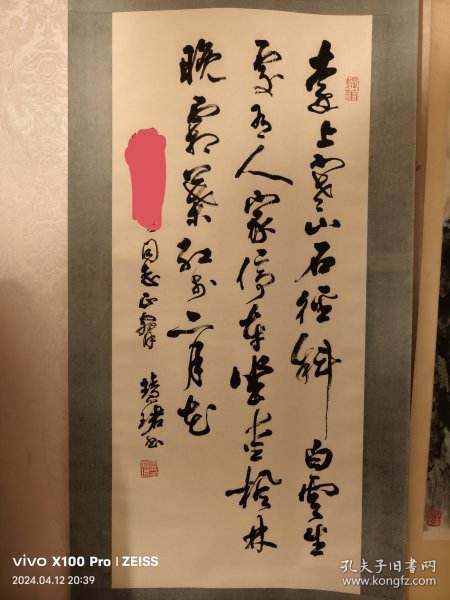 遠上寒山石徑斜白雲生
處有人家停車坐愛楓林
晚霜葉紅於二月花
同志正
书
vivo X100 Pro | ZEISS
2024.04.12 20:39
孔夫子旧书网
www.kongfz.com